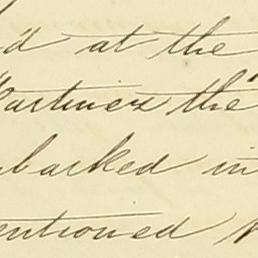 'd at the
Martinez the"
barked in
entioned